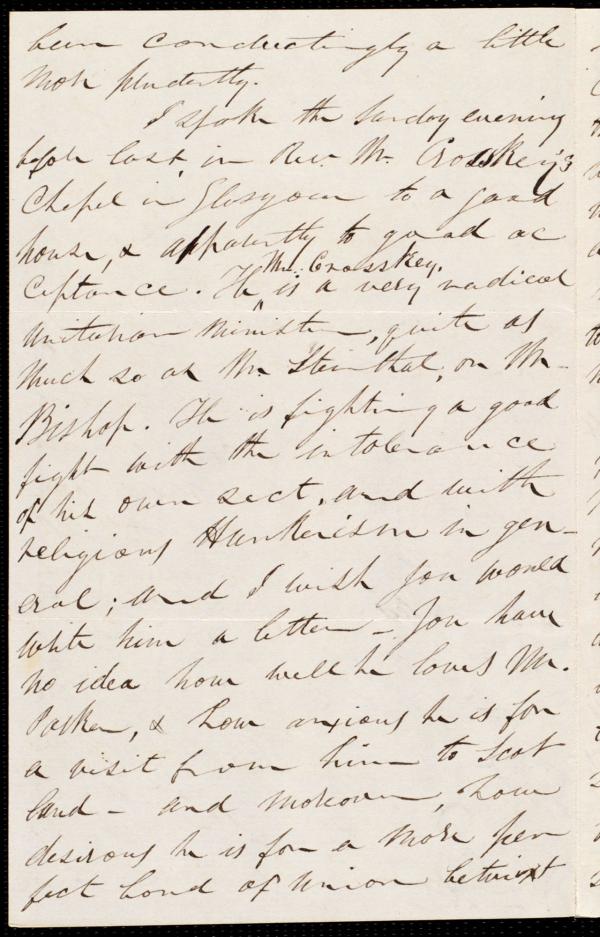 been conductingly a little
more prudently.
I spoke the Sunday evening
before last, in Rev. Mr. Crosskey's
Chapel in Glasgow to a good
house, & apparently to good ac
ceptance. He ^ Mr. Crosskey. is a very radical
Unitarian Minister, quite as
much so as Mr. Steinthal, or Mr.
Bishop. He is fighting a good
fight with the intolerance
of his own sect, and with
religious Hunkerism in gen-
eral; and I wish you would
write him a letter – You have
no idea how well he loves Mr.
Parker, & how anxious he is for
a visit from him to Scot
land – and moreover, how
desirous he is for a more per
fect bond of union betwixt